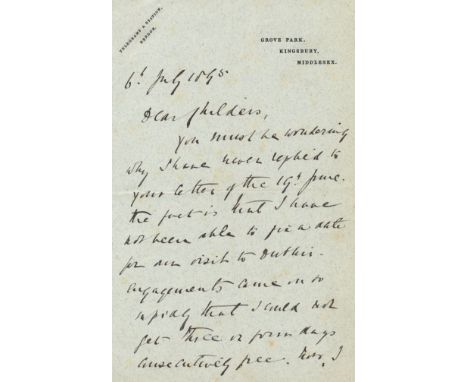 TELEGRAMS & STATION,
HENDON.
GROVE PARK,
KINGSBURY,
MIDDLESEX.
6th July 1895
Dear Childers,
You must be wondering
why I have never replied to
your letter of the 19th June.
The fact is that I have
not been able to fix a date
for our visit to Dublin.
engagements came on so
rapidly that I could not
get three or four days
consecutively free. Now, I